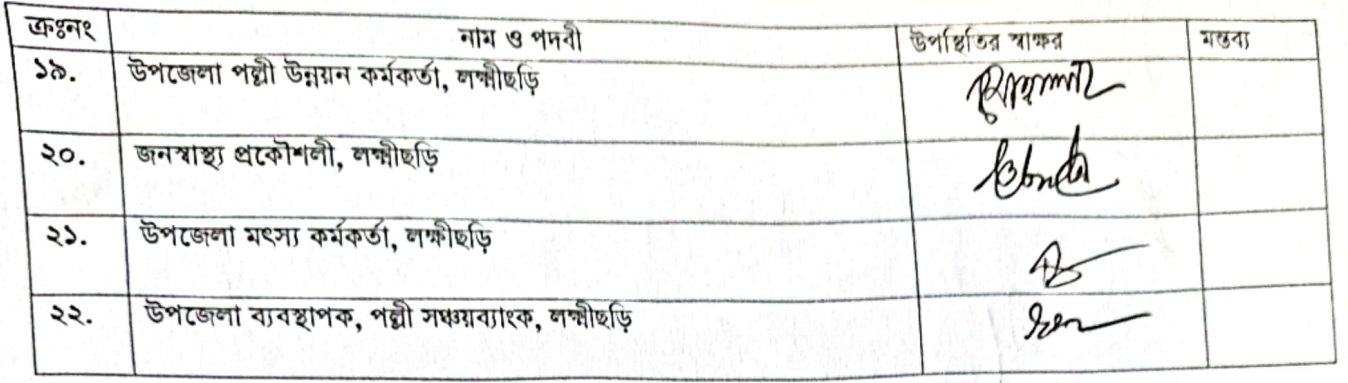 ক্রঃনং নাম ও পদবী উপস্থিতির স্বাক্ষর মন্তব্য
১৯. উপজেলা পল্লী উন্নয়ন কর্মকর্তা, লক্ষ্মীছড়ি
২০. জনস্বাস্থ্য প্রকৌশলী, লক্ষ্মীছড়ি
২১. উপজেলা মৎস্য কর্মকর্তা, লক্ষীছড়ি
২২. উপজেলা ব্যবস্থাপক, পল্লী সঞ্চয়ব্যাংক, লক্ষ্মীছড়ি